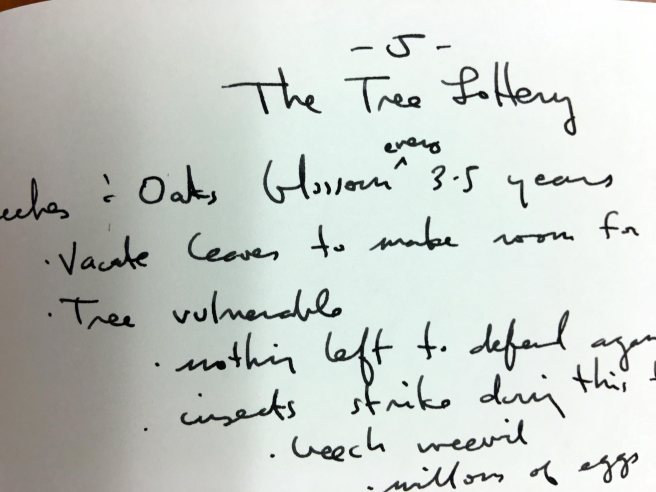 - 5 -
The Tree Lottery
& Oaks blossom every 3-5 years
· Vacate leaves to make room for
· Tree vulnerable
· nothing left to defend
· insects strike during this
· beech weevil
· millions of eggs